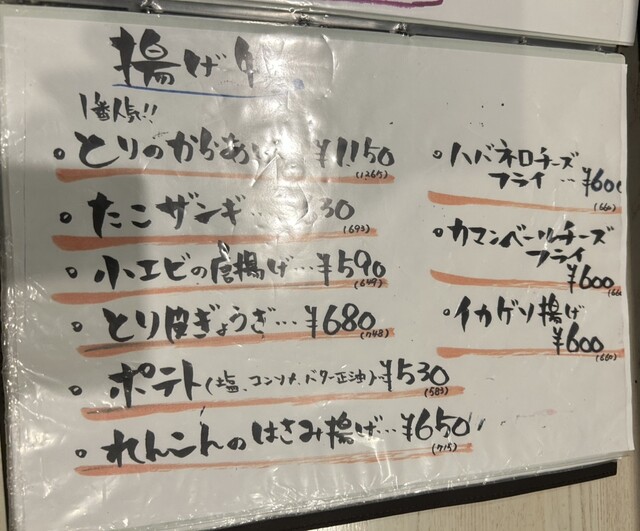 揚げ物
1番人気!!
とりのからあげ ¥1,150
(1265)
たこザンギ… 30
(693)
小エビの唐揚げ…¥590
(649)
とり皮ぎょうざ…¥680
(748)
ポテト(塩、コンソメ、バター正油)…¥530
(583)
れんこんのはさみ揚げ…¥650
(715)
ハバネロチーズ
フライ…¥600
(660)
カマンベールチーズ
フライ
¥600
イカゲソ揚げ
¥600
(660)